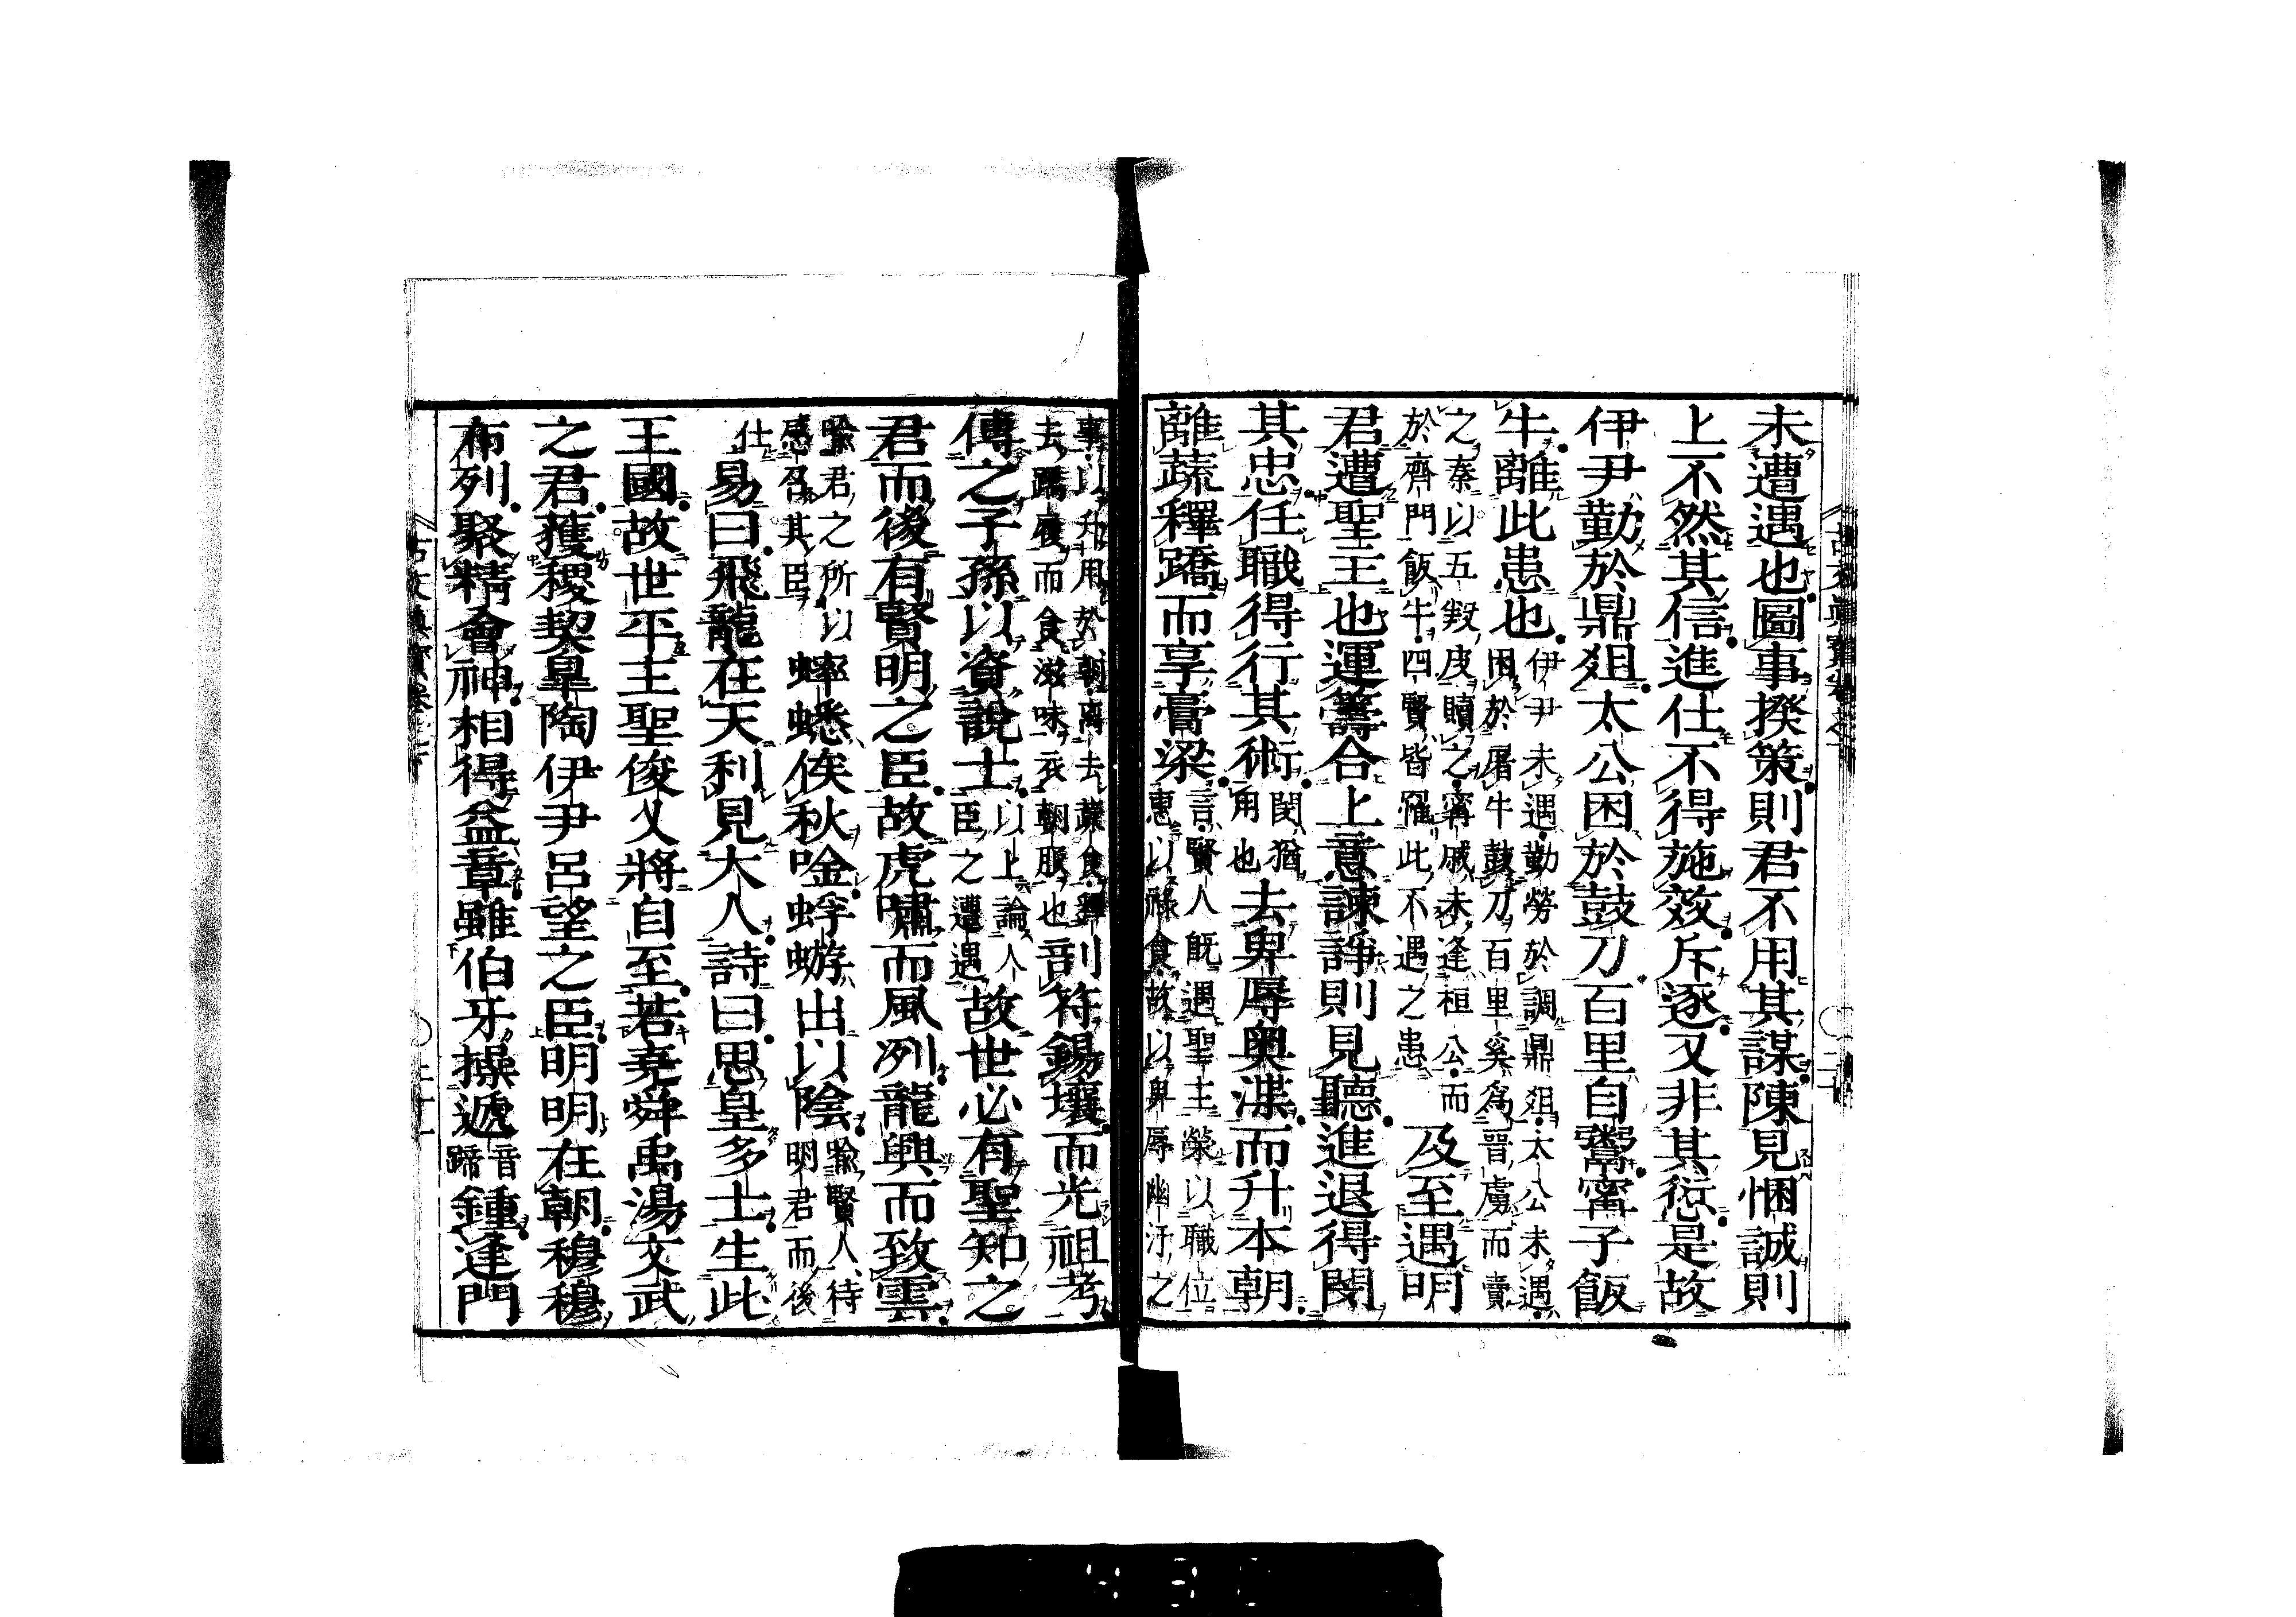 未遭遇也圖事揆策則君不用其謀陳見悃誠則
上不然其信進仕不得施效斥逐又非其愆是故
伊尹勤於鼎俎太公困於鼓刀百里自鬻甯子飯
牛離此患也伊尹未遇勤勞於調鼎俎太公未遇
困於屠牛鼓刀百里奚爲晋虜而賣
之秦以五羖皮贖之甯戚未逢桓公而
於齊門飯牛四賢皆罹此不遇之患
及至遇明
君遭聖王也運籌合上意諫諍則見聽進退得閔
其忠任職得行其術閔猶
用也
去卑辱奥渫而升本朝
離蔬釋蹻而享膏粱言賢人旣遇聖主榮以職位
惠以祿食故以卑辱幽汙之
事以升用於朝離去蔬食釋
去蹻履而食滋味衣朝服也
剖符錫壤而光祖考
傳之子孫以資說士以上論人
臣之遭遇
故世必有聖知之
君而後有賢明之臣故虎嘯而風冽龍興而致雲
喩君之所以
感召其臣
蟋蟀俟秋唫蜉蝣出以陰喩賢人待
明君而後
仕
易曰飛龍在天利見大人詩曰思皇多士生此
王國故世平主聖俊乂將自至若堯舜禹湯文武
之君獲稷契臯陶伊尹呂望之臣明明在朝穆穆
布列聚精會神相得益章雖伯牙操遞音
蹄
鍾逢門